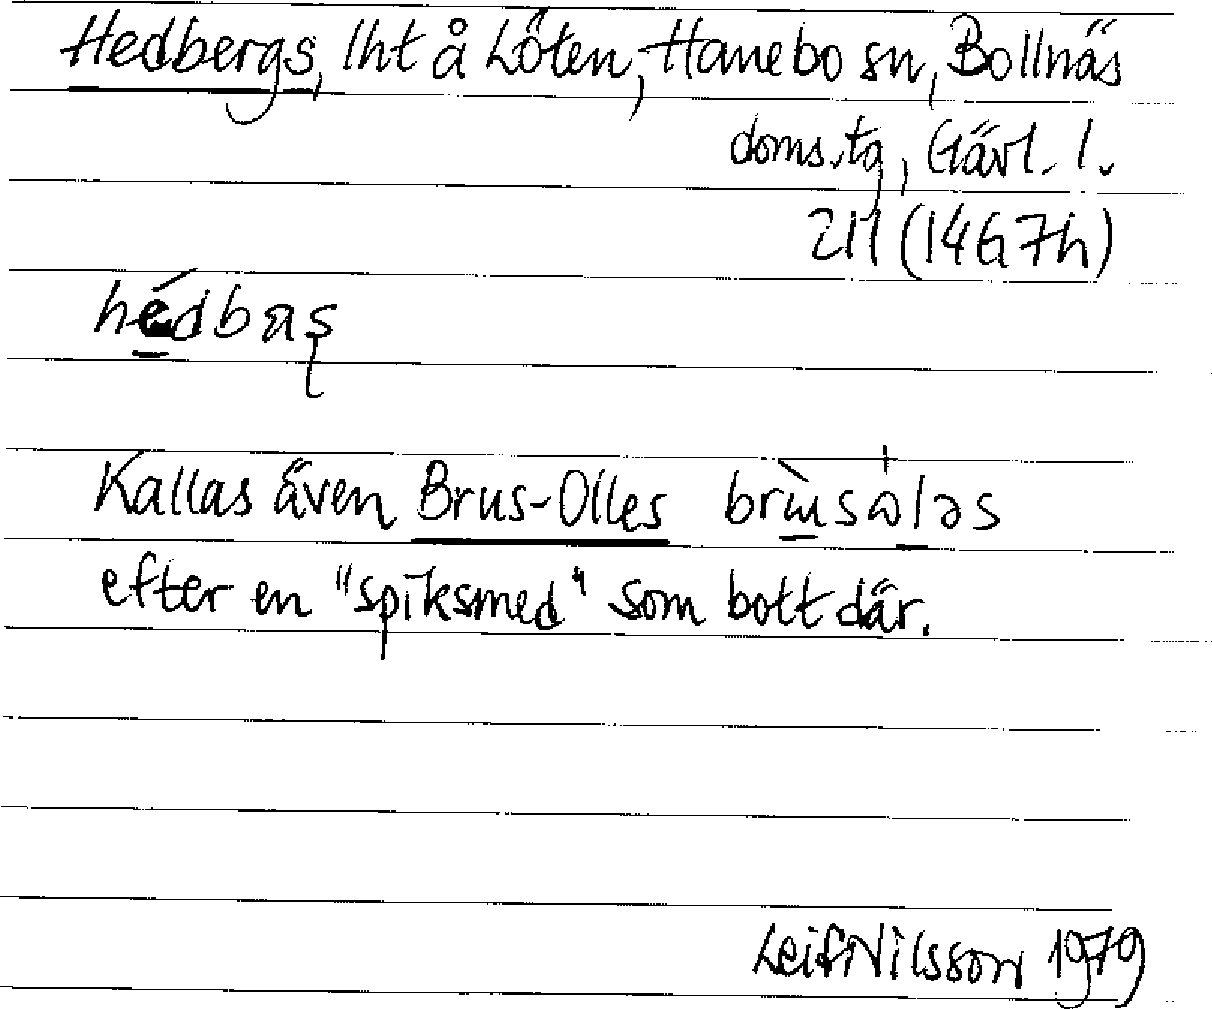 Hedbergs, lht å Löten, Hanebo sn, Bollnäs
doms.tg, Gävl. l.
211 (14G7h)
hédbæʂ
Kallas även Brus-Olles
efter en "spiksmed" som bott där.
Leif Nilsson 1979